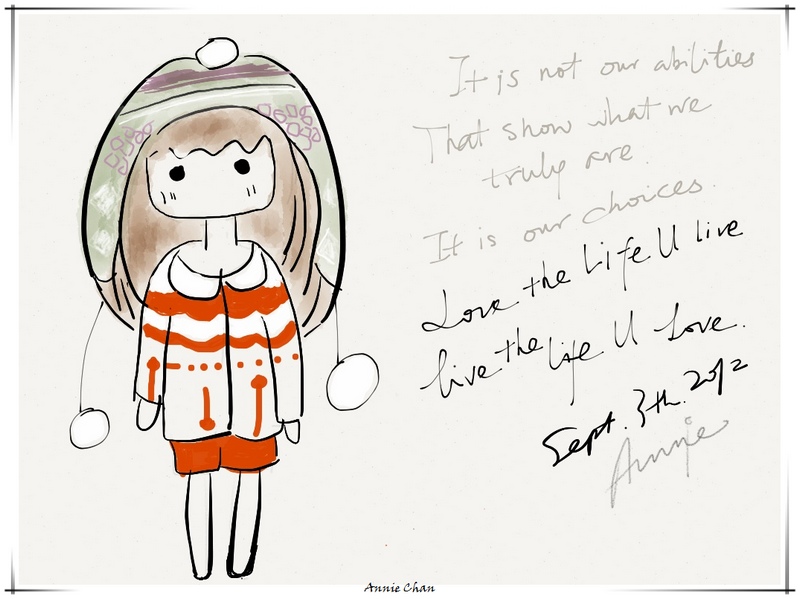 It is not our abilities
That show what we
truly are.
It is our choices.
Love the Life U live
live the life U Love.
Sept. 3th. 2012
Annie
Annie Chan